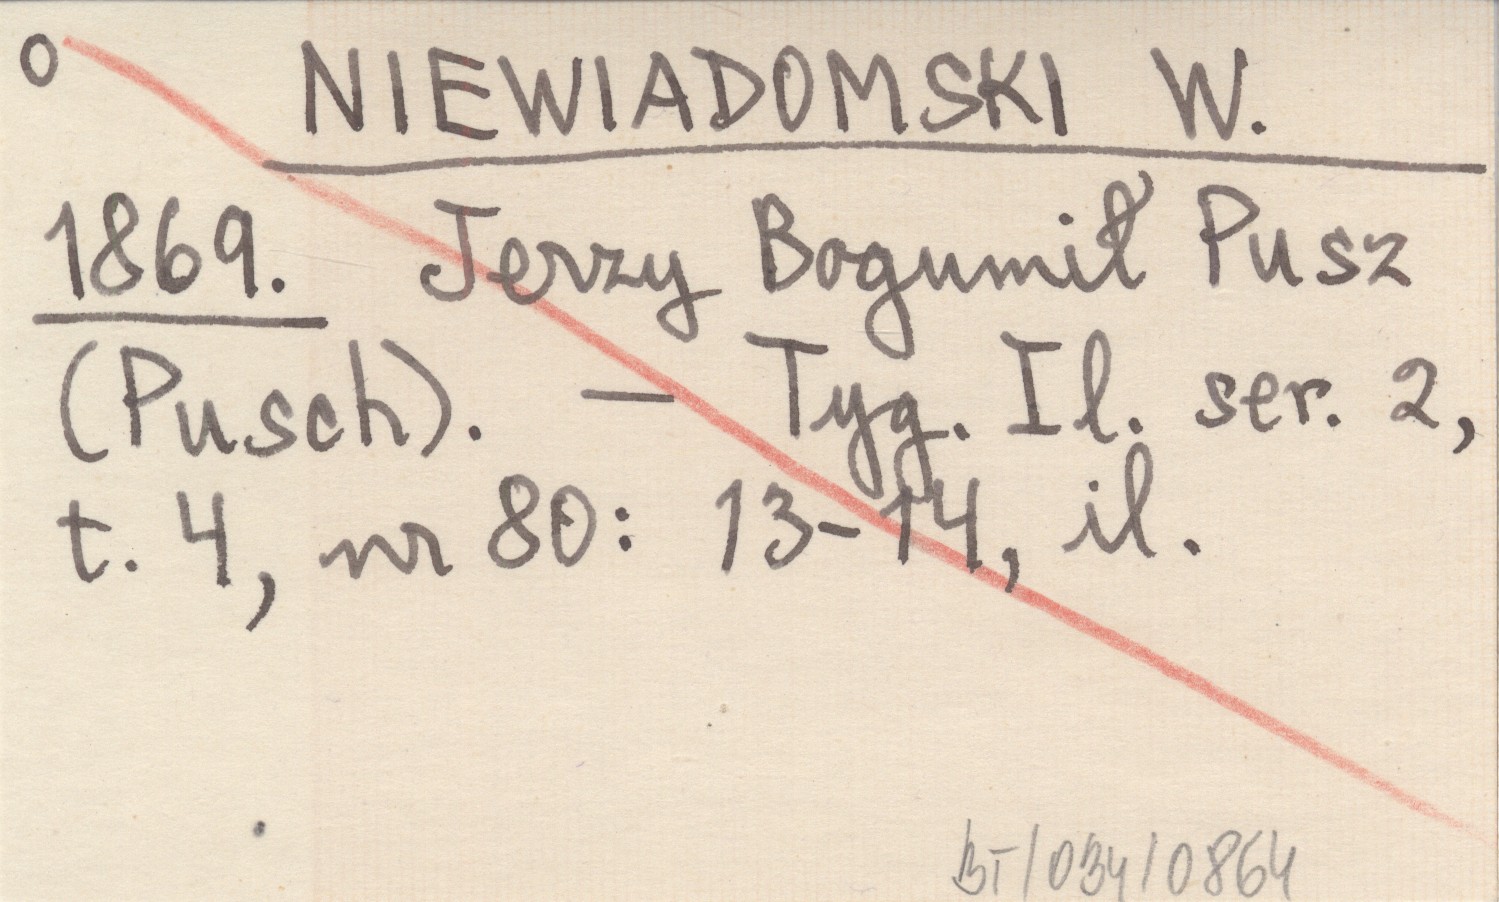 o NIEWIADOMSKI W.
1869. Jerzy Bogumił Pusz
(Pusch). – Tyg. Il. ser. 2,
t. 4, nr 80: 13-14, il.
BT/034/0864